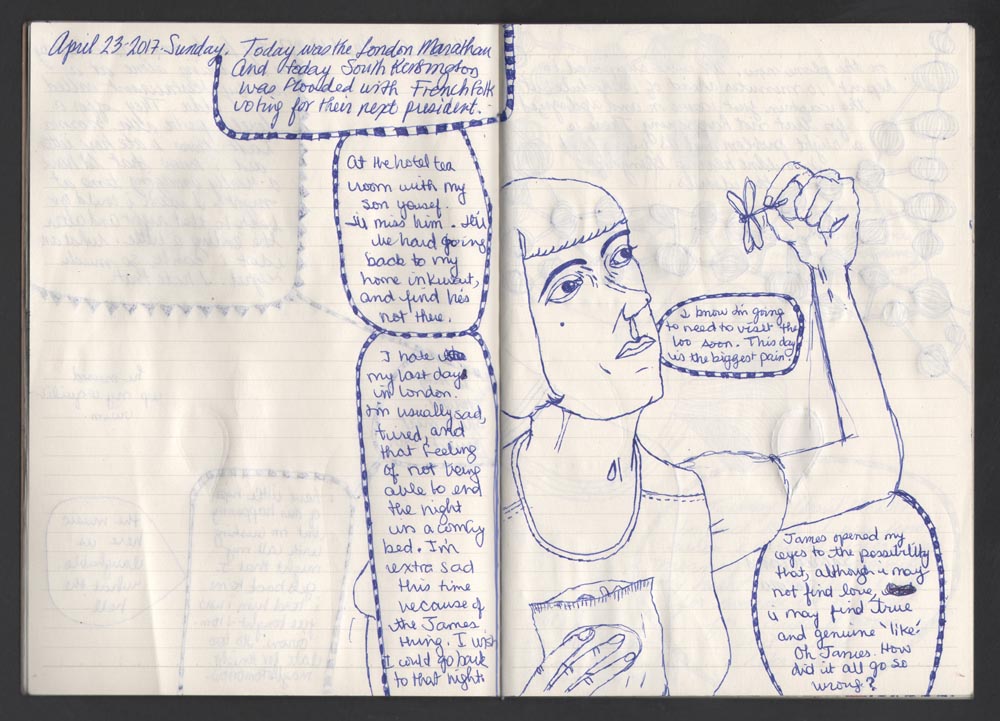 April 23-2017. Sunday. Today was the London Marathan
and today South Kensington
was flooded with French folk
voting for their next president.
At the hotel tea
room with my
son yousef.
I'll miss him. It'll
be hard going
back to my
home in kuwait,
and find he's
not there.
I hate
my last days
in London.
I'm usually sad,
tired, and
that feeling
of not being
able to end
the night
in a comfy
bed. I'm
extra sad
this time
because of
the James
thing. I wish
I could go back
to that night.
I know I'm going
to need to visit the
loo soon. This day
is the biggest pain.
James opened my
eyes to the possibility
that, although i may
not find love,
i may find true
and genuine 'like'.
Oh James. How
did it all go so
wrong?